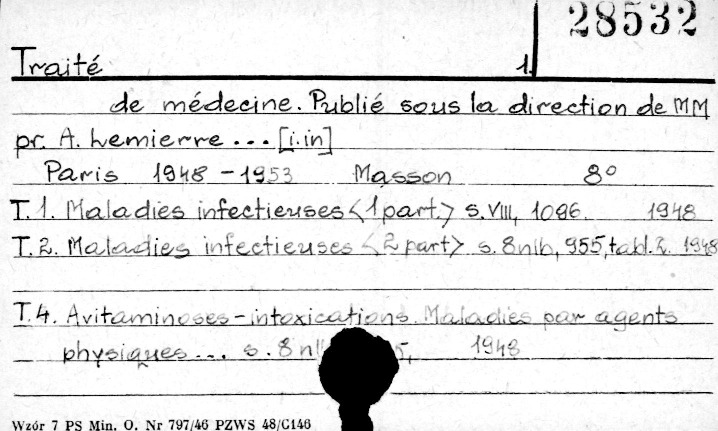 28532
Traité 1.
de médecine. Publié sous la direction de MM
pr. A. Lemierre ... [i.in]
Paris 1948-1953 Masson 8°
T.1. Maladies infectieuses <1 part.> s. VIII, 1096 1948
T.2. Maladies infectieuses <2 part> s. 8nlb, 955, tabl. 2. 1948
T.4. Avitaminoses-intoxications Maladies par agents
physiques... s. 8 1948
Wzór 7 PS Min. O. Nr 797/46 PZWS 48/G146